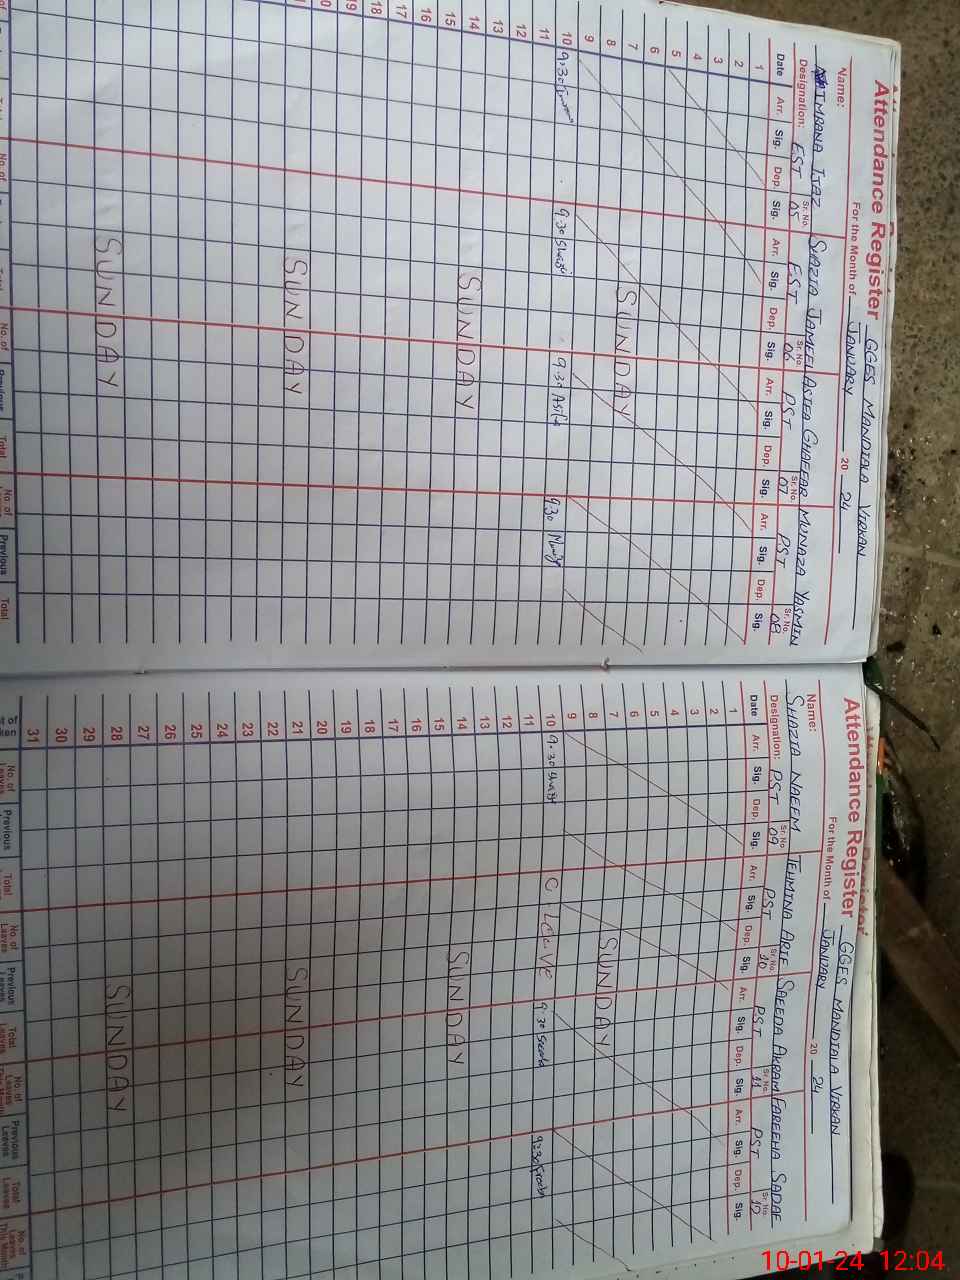 Attendance Register GGES MANDIALA VIRKAN
For the Month of JANUARY 20 24
Name: IMRANA IJAZ SHAZIA JAMEEL ASIFA GHAFFAR MUNAZA YASMIN
Designation: EST Sr. No. 05 EST Sr. No. 06 PST Sr. No. 07 PST Sr. No. 08
Date Arr. Sig. Dep. Sig. Arr. Sig. Dep. Sig. Arr. Sig. Dep. Sig. Arr. Sig. Dep. Sig.
1
2
3
4
5
6
7 SUNDAY
8
9
10 9:30 9:30 9:30 9:30
11
12
13
14 SUNDAY
15
16
17
18
19
20
SUNDAY
SUNDAY
No. of Total No. of Previous Total No. of Previous Total
Attendance Register GGES MANDIALA VIRKAN
For the Month of JANUARY 20 24
Name: SHAZIA NAEEM TEHMINA ARIF SAEEDA AKRAM FAREEHA SADAF
Designation: PST Sr. No. 09 PST Sr. No. 10 PST Sr. No. 11 PST Sr. No. 12
Date Arr. Sig. Dep. Sig. Arr. Sig. Dep. Sig. Arr. Sig. Dep. Sig. Arr. Sig. Dep. Sig.
1
2
3
4
5
6
7 SUNDAY
8
9
10 9:30 C. LEAVE 9:30 9:30
11
12
13
14 SUNDAY
15
16
17
18
19
20
21 SUNDAY
22
23
24
25
26
27
28 SUNDAY
29
30
31
No. of Leaves Previous Total Leaves No. of Leaves Previous Leaves Total Leaves No. of Leaves This Month Previous Leaves Total Leaves No. of Leaves This Month
10-01-24 12:04